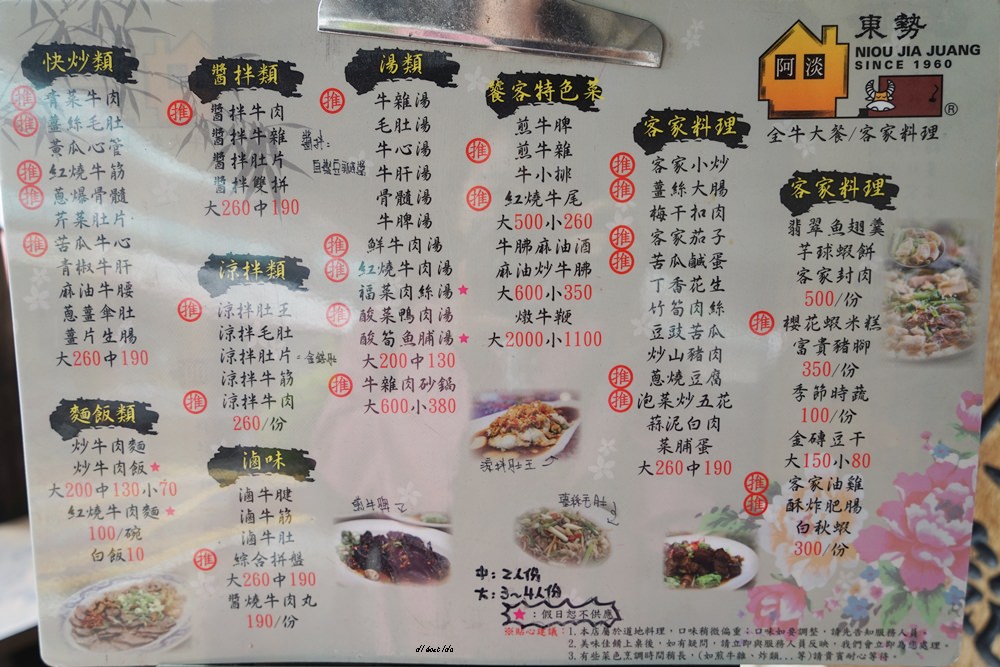 快炒類
推 青菜牛肉
推 薑絲毛肚
黃瓜心管
推 紅燒牛筋
推 蔥爆骨髓
芹菜肚片
推 苦瓜牛心
青椒牛肝
麻油牛腰
蔥薑傘肚
薑片生腸
大260中190
麵飯類
炒牛肉麵
炒牛肉飯★
大200中130小70
紅燒牛肉麵★
100/碗
白飯10
醬拌類
推 醬拌牛肉
醬拌牛雜
醬拌肚片
醬拌雙拼
大260中190
醬拌:
涼拌類
推 涼拌肚王
涼拌毛肚
涼拌肚片
涼拌牛筋
推 涼拌牛肉
260/份
滷味
滷牛腱
滷牛筋
滷牛肚
推 綜合拼盤
大260中190
醬燒牛肉丸
190/份
湯類
推 牛雜湯
毛肚湯
牛心湯
牛肝湯
骨髓湯
牛脾湯
推 鮮牛肉湯
推 紅燒牛肉湯
福菜肉絲湯★
推 酸菜鴨肉湯
酸筍魚脯湯★
大200中130
推 牛雜肉砂鍋
大600小380
饕客特色菜
煎牛脾
推 煎牛雜
牛小排
推 紅燒牛尾
大500小260
牛膊麻油酒
麻油炒牛膊
大600小350
燉牛鞭
大2000小1100
涼拌肚王
煎牛脾
薑絲毛肚
中:2人份
大:3~4人份
★:假日恕不供應
客家料理
推 客家小炒
推 薑絲大腸
梅干扣肉
推 客家茄子
推 苦瓜鹹蛋
丁香花生
竹筍肉絲
豆豉苦瓜
炒山豬肉
推 蔥燒豆腐
推 泡菜炒五花
蒜泥白肉
菜脯蛋
大260中190
阿淡
東勢
NIOU JIA JUANG
SINCE 1960
®
全牛大餐/客家料理
客家料理
翡翠魚翅羹
芋球蝦餅
客家封肉
500/份
推 櫻花蝦米糕
富貴豬腳
350/份
季節時蔬
100/份
金磚豆干
大150小80
推 客家油雞
推 酥炸肥腸
白秋蝦
300/份
※貼心建議:1.本店屬於道地料理,口味稍微偏重;口味如要調整,請先告知服務人員。
2.美味佳餚上桌後,如有疑問,請立即與服務人員反映,我們會立即為您處理。
3.有些菜色烹調時間稍長,(如煎牛雜、炸類...等)請貴賓耐心等待。